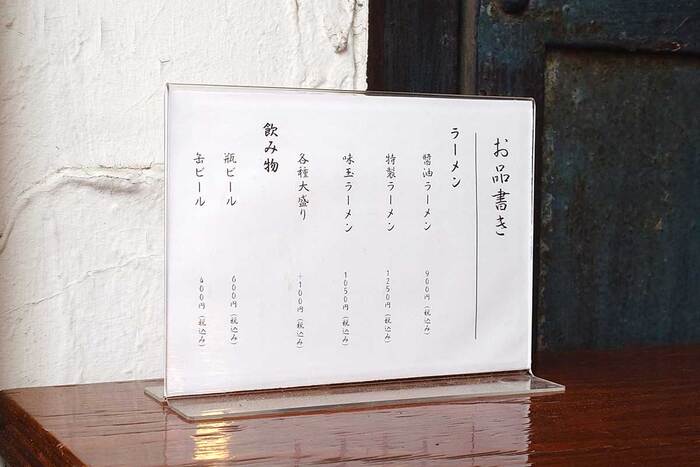 お品書き
ラーメン
醬油ラーメン 900円(税込み)
特製ラーメン 1250円(税込み)
味玉ラーメン 1050円(税込み)
各種大盛り +100円(税込み)
飲み物
瓶ビール 600円(税込み)
缶ビール 400円(税込み)